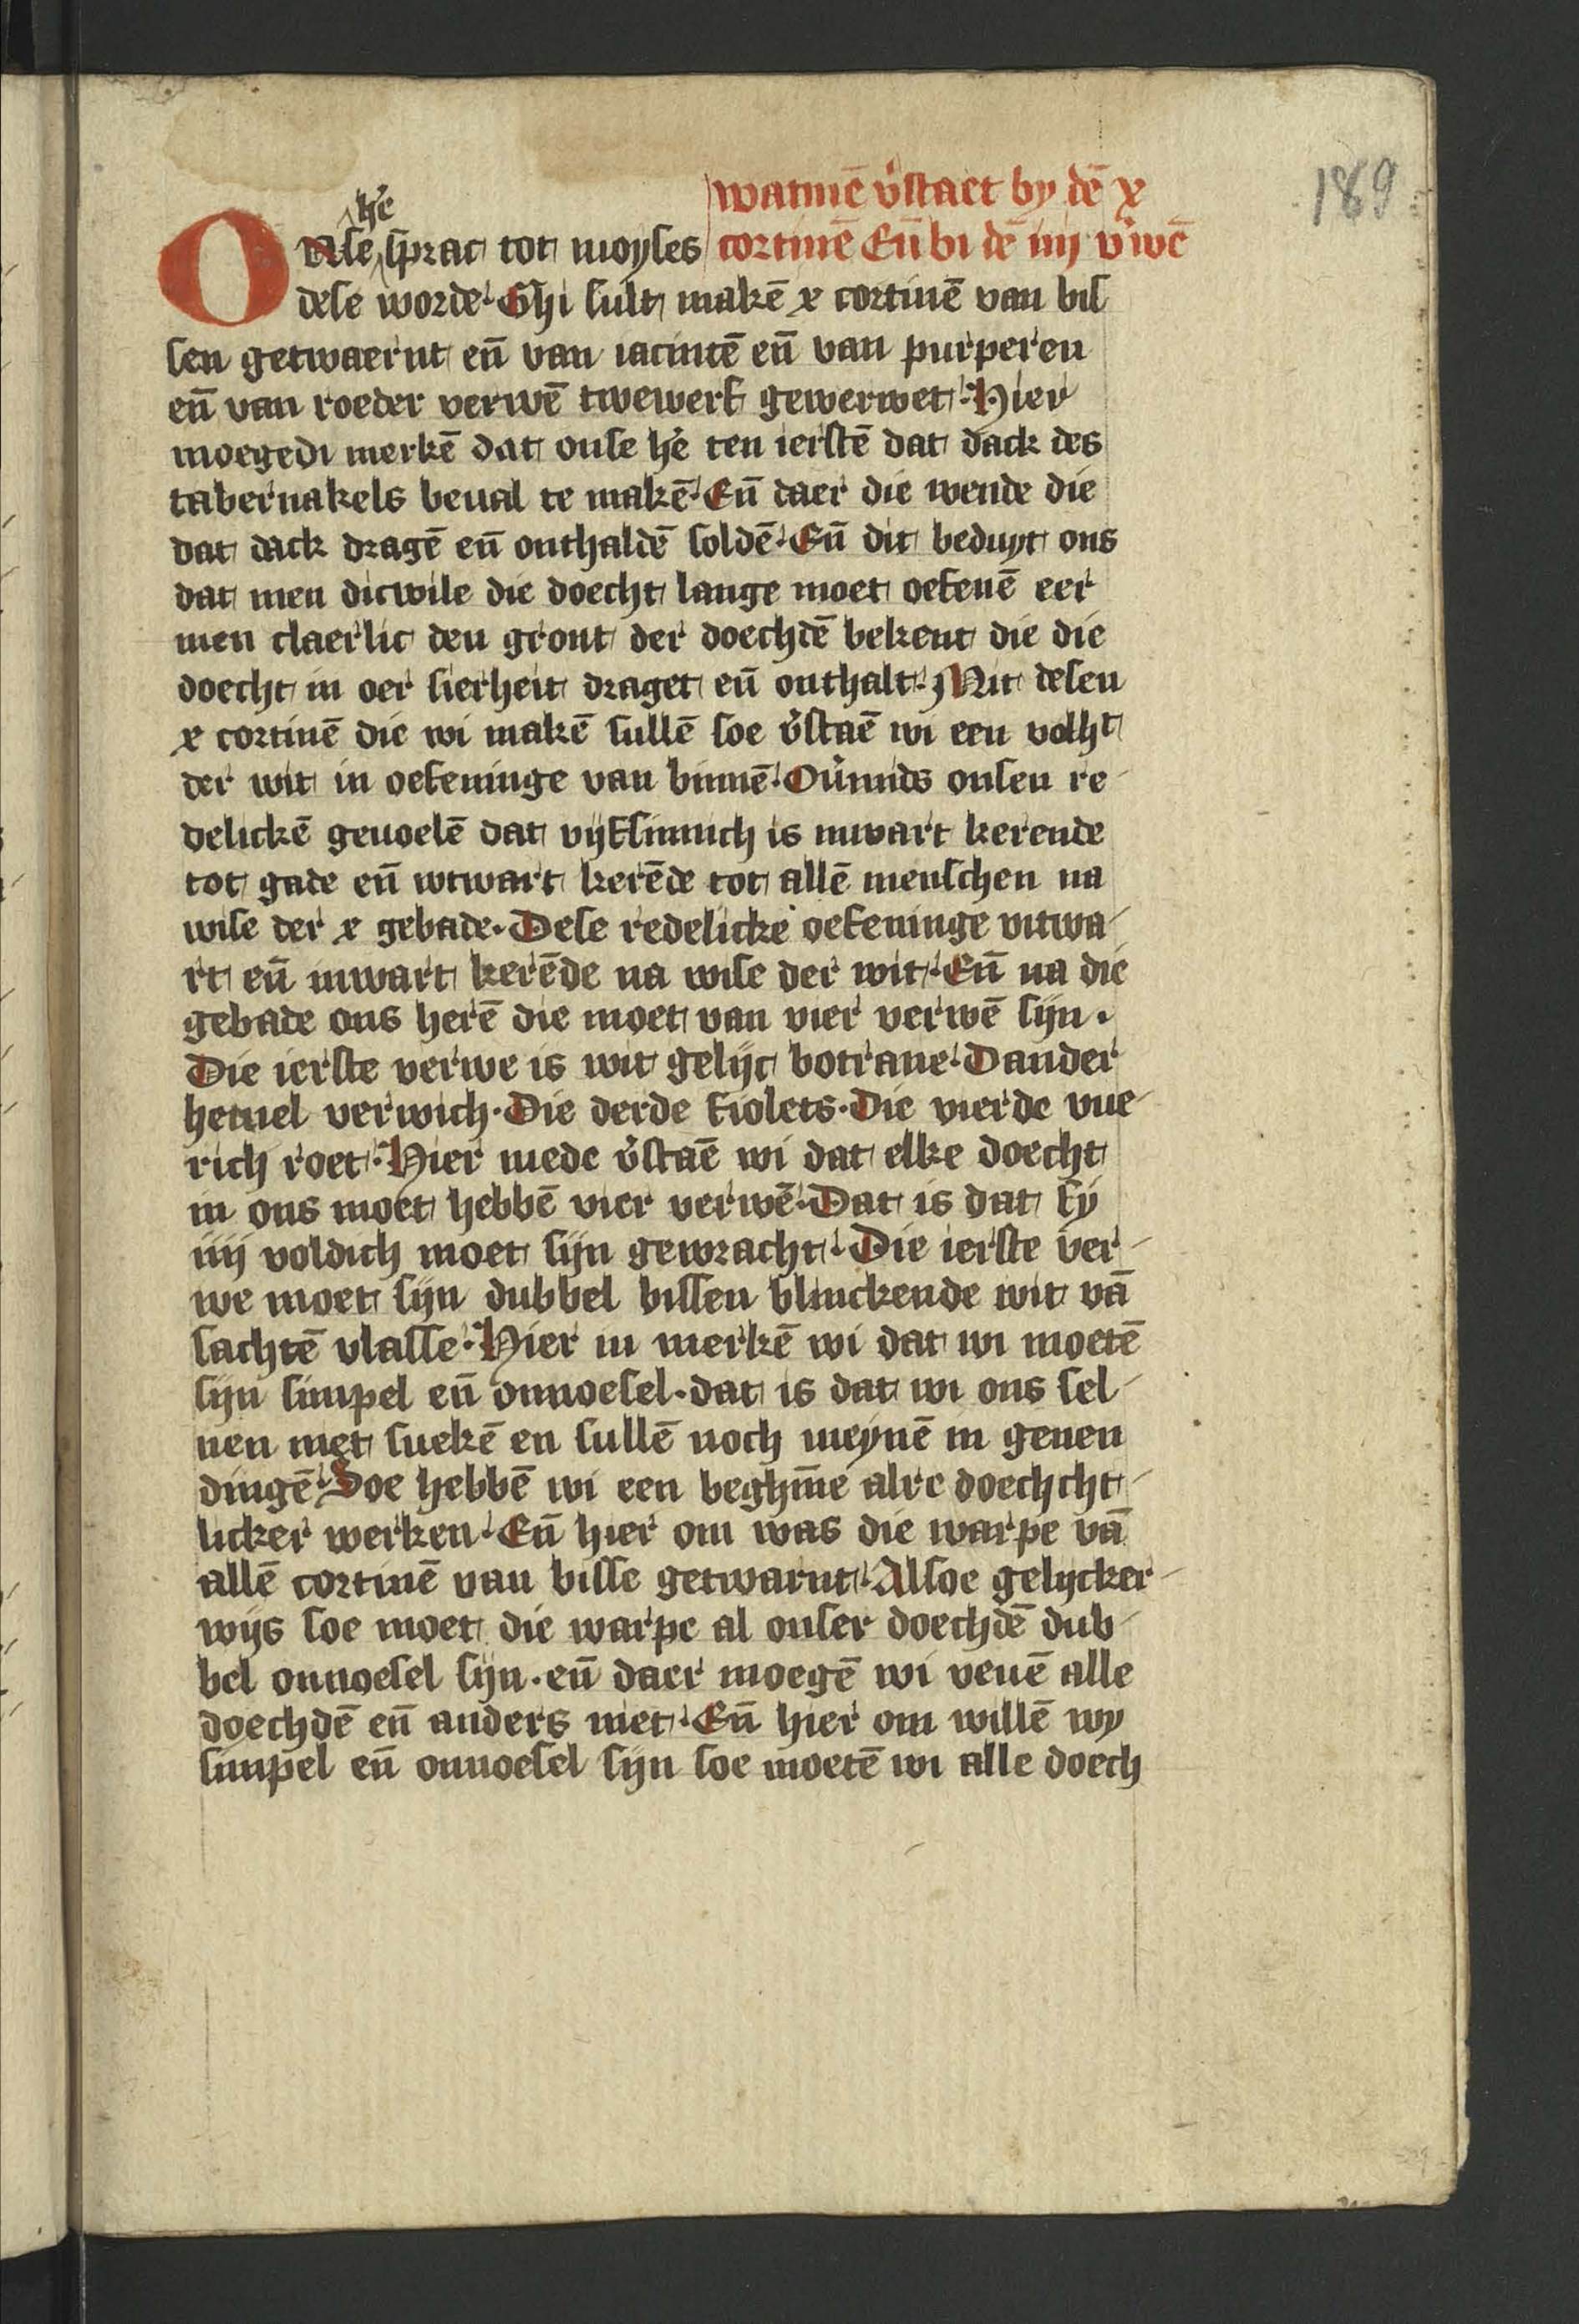 189
watmē v̉staet by dē x
cortinē Eñ bi dē iiij v̉wē
h̉e
Onse sprac tot moyses
dese worde· Ghi sult makē x cortinē van bis
sen getwaernt eñ van iacintē eñ van purperen
eñ van roeder verwē twewerf gewerwet· Hier
moegedi merkē dat onse h̉e ten ierstē dat dack des
tabernakels beual te makē· Eñ daer die wende die
dat dack dragē eñ onthaldē soldē· Eñ dit beduyt ons
dat men dicwile die doecht lange moet oefenē eer
men claerlic den gront der doechdē bekent die die
doecht in oer sierheit draget eñ onthalt· Mit desen
x cortinē die wi makē sullē soe v̉staē wi een volh̵t
der wit in oefeninge van binnē· Ou̓mids onsen re-
delickē geuoelē dat vijfsinnich is inwart kerende
tot gade eñ wtwart kerēde tot allē menschen na
wise der x gebade· Dese redelicke oefeninge vutwa-
rt eñ inwart kerēde na wise der wit· Eñ na die
gebade ons herē die moet van vier verwē sijn·
Die ierste verwe is wit gelijc botrane· Dander
hemel verwich· Die derde fiolets· Die vierde vue-
rich roet· Hier mede v̉staē wi dat elke doecht
in ons moet hebbē vier verwē· Dat is dat sy
iiij voldich moet sijn gewracht· Die ierste ver-
we moet sijn dubbel bissen blinckende wit vā
sachtē vlasse· Hier in merkē wi dat wi moetē
sijn simpel eñ onnoesel· dat is dat wi ons sel-
uen niet suekē en sullē noch meynē in genen
dingē· Soe hebbē wi een beghīne alre doechcht-
licker werken· Eñ hier om was die warpe vā
allē cortinē van bisse getwarnt· Alsoe gelycker-
wijs soe moet die warpe al onser doechdē dub-
bel onnoesel sijn· eñ daer moegē wi veuē alle
doechdē eñ anders niet· Eñ hier om willē wy
simpel eñ onnoesel sijn soe moetē wi alle doech